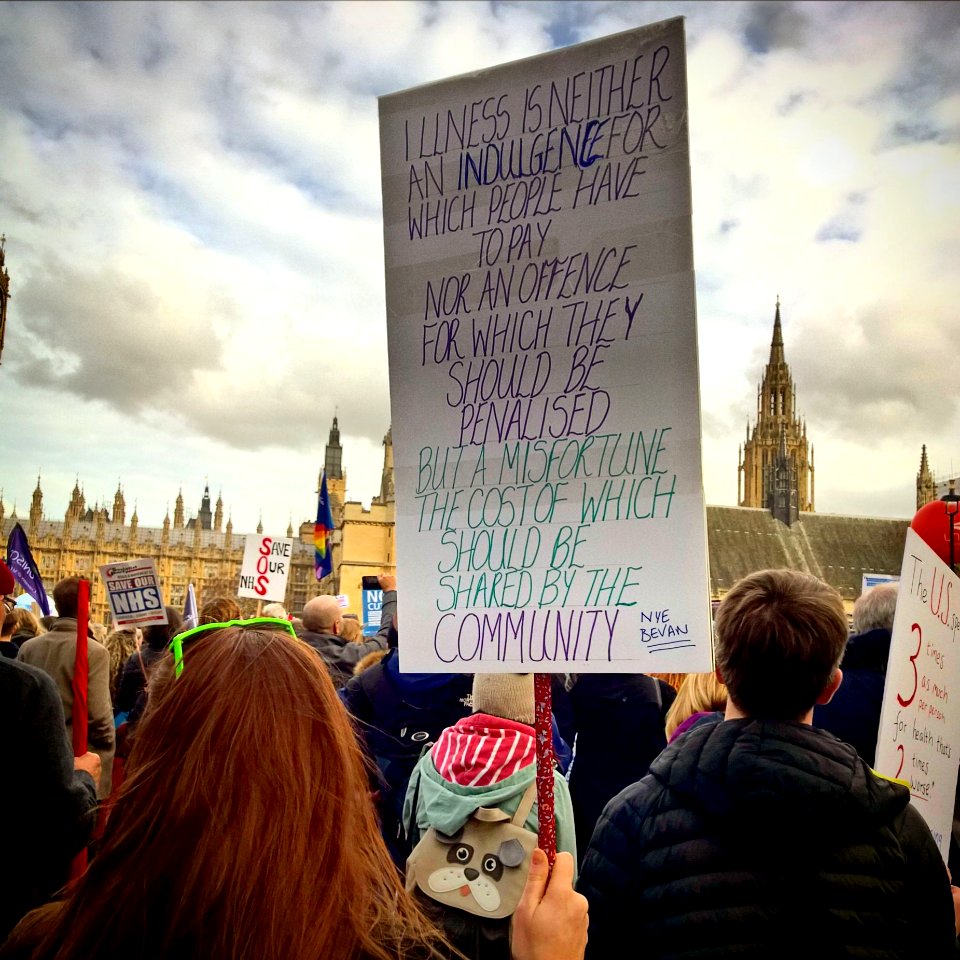 ILLNESS IS NEITHER
AN INDULGENCE FOR
WHICH PEOPLE HAVE
TO PAY
NOR AN OFFENCE
FOR WHICH THEY
SHOULD BE
PENALISED
BUT A MISFORTUNE
THE COST OF WHICH
SHOULD BE
SHARED BY THE
COMMUNITY
NYE
BEVAN
UNISON
SAVE OUR
NHS
SAVE
OUR
NHS
NO
The U.S.
3 times
as much
per person
for health thats
2 times
worse."